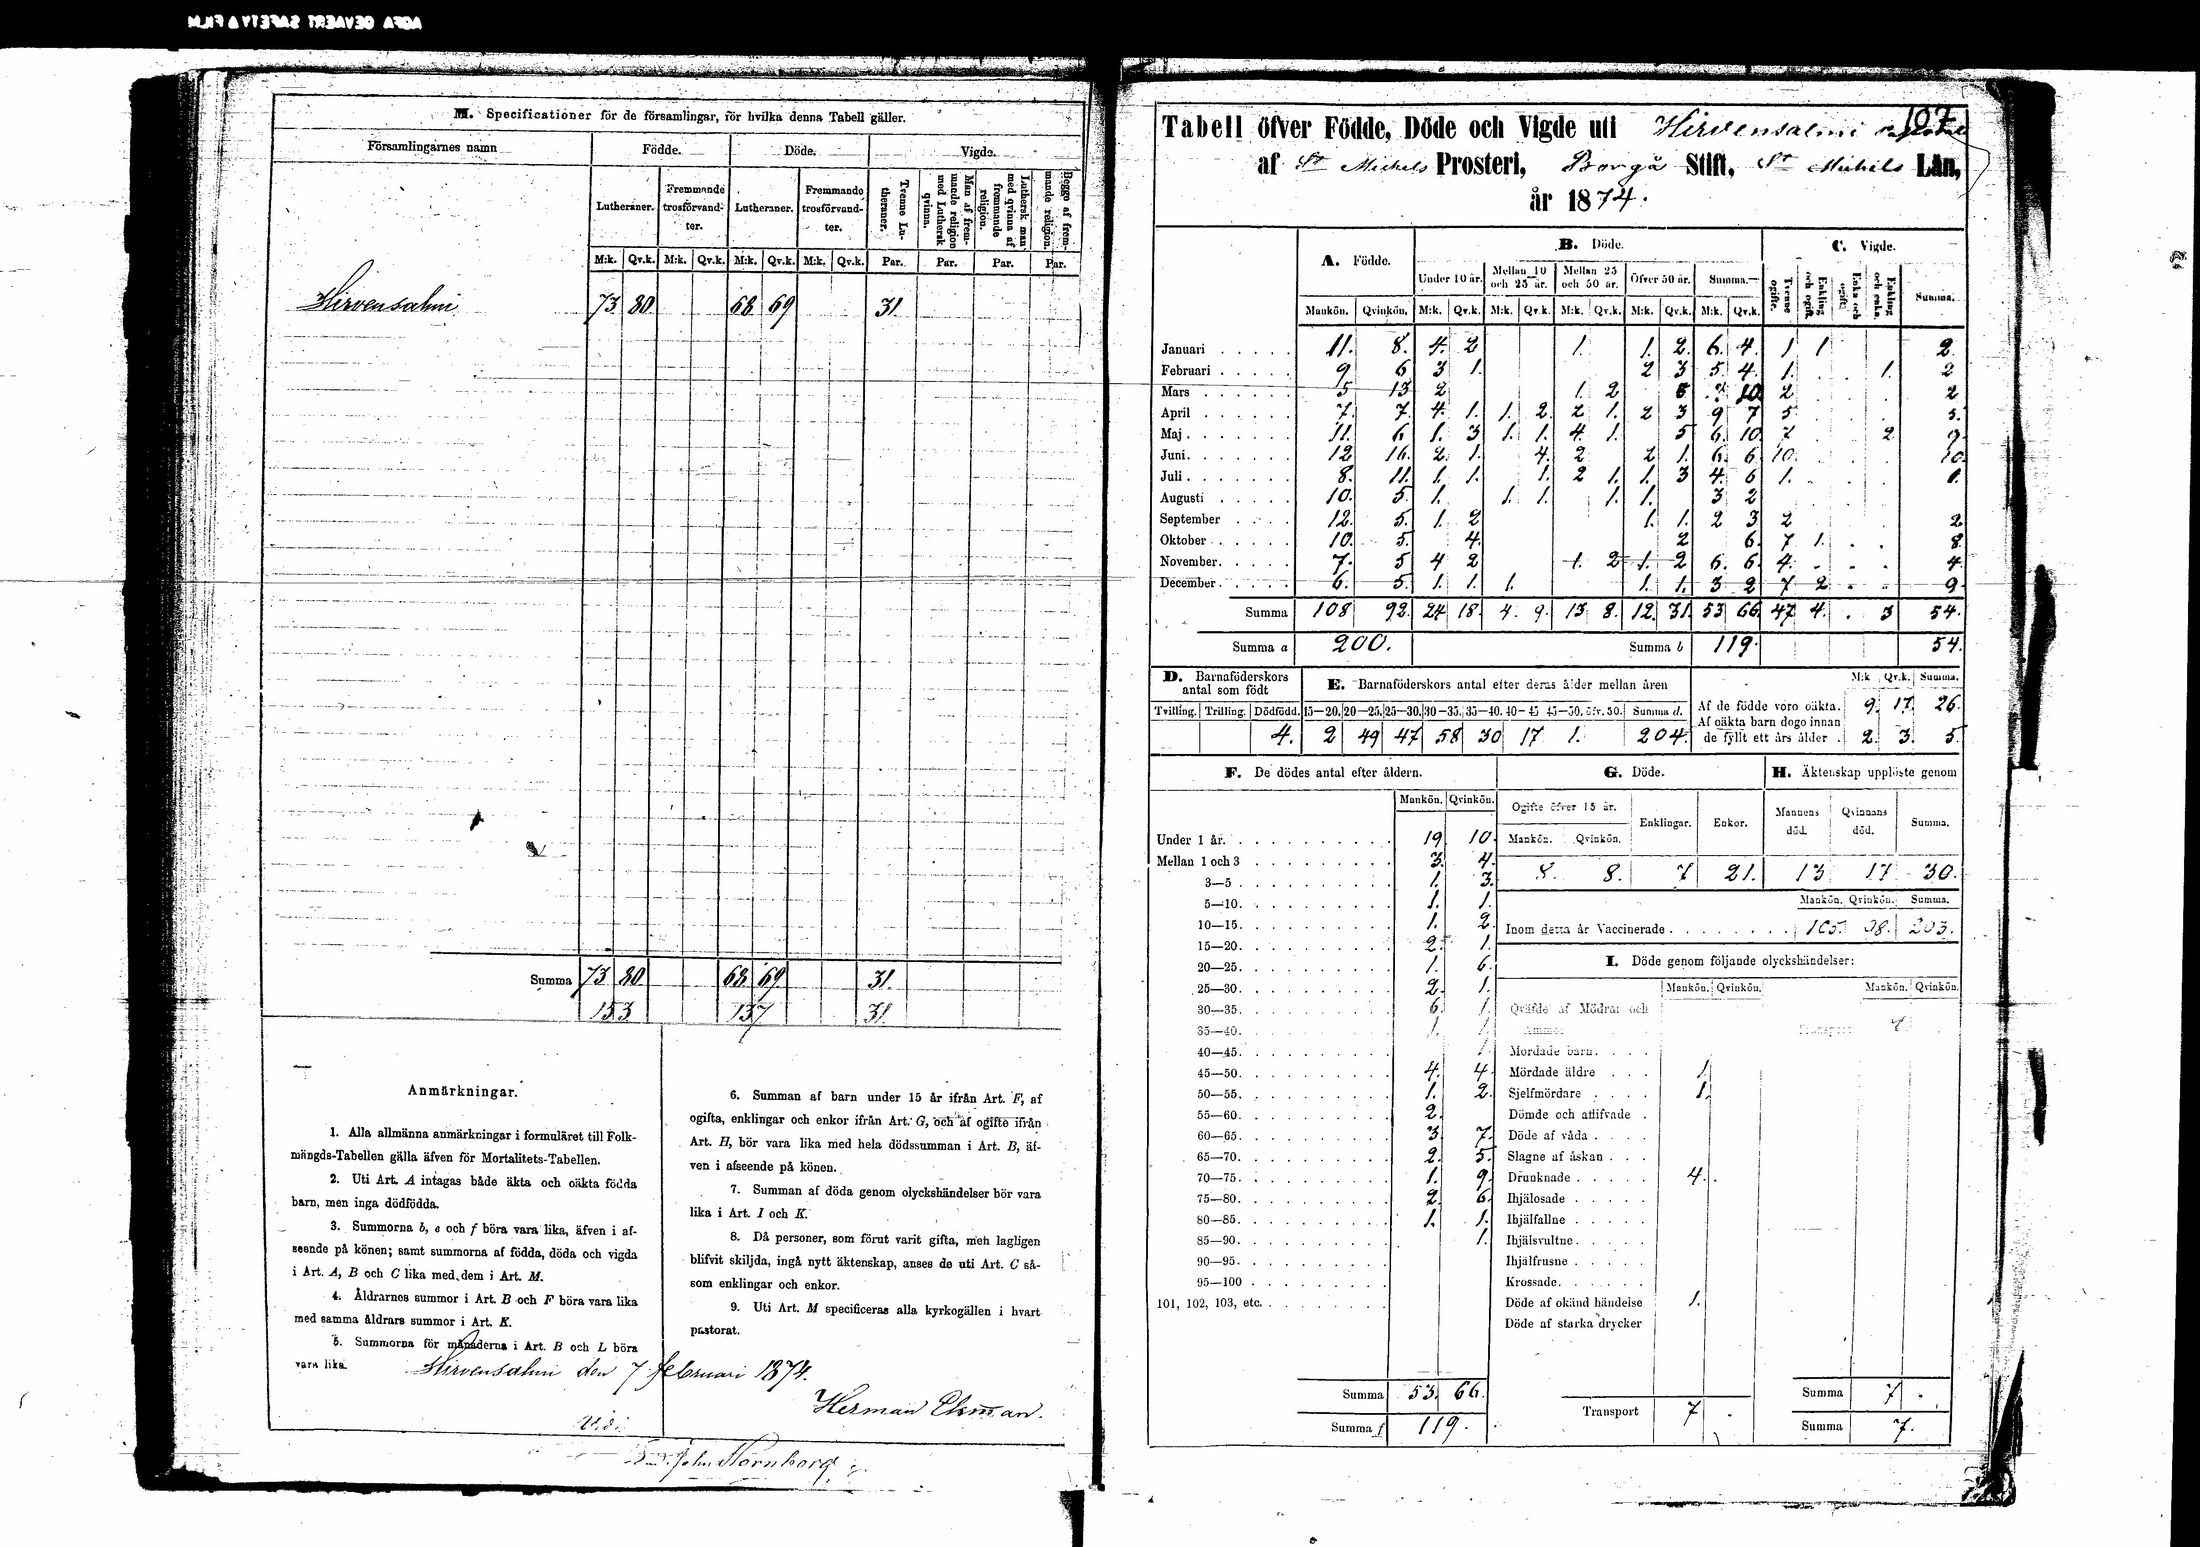 AGFA GEVAERT SAFETY FILM
M. Specificationer för de församlingar, för hvilka denna Tabell gäller.
Församlingarnes namn Födde. Döde. Vigde.
Lutheraner. Fremmande trosförvandter. Lutheraner. Fremmande trosförvandter. Tvenne Lutheraner. Man af fremmande religion med Luthersk qvinna. Luthersk man med qvinna af fremmande religion. Begge af fremmande religion.
M:k. Qv.k. M:k. Qv.k. M:k. Qv.k. M:k. Qv.k. Par. Par. Par. Par.
Hirvensalmi 73 80 68 69 31
Summa 73 80 68 69 31
153 137 31
Anmärkningar.
1. Alla allmänna anmärkningar i formuläret till Folk-
mängds-Tabellen gälla äfven för Mortalitets-Tabellen.
2. Uti Art. A intagas både äkta och oäkta födda
barn, men inga dödfödda.
3. Summorna b, e och f böra vara lika, äfven i af-
seende på könen; samt summorna af födda, döda och vigda
i Art. A, B och C lika med dem i Art. M.
4. Åldrarnes summor i Art. B och F böra vara lika
med samma åldrars summor i Art. K.
5. Summorna för månaderna i Art. B och L böra
vara lika.
6. Summan af barn under 15 år ifrån Art. F, af
ogifta, enklingar och enkor ifrån Art. G, och af ogifte ifrån
Art. H, bör vara lika med hela dödssumman i Art. B, äf-
ven i afseende på könen.
7. Summan af döda genom olyckshändelser bör vara
lika i Art. I och K.
8. Då personer, som förut varit gifta, men lagligen
blifvit skiljda, ingå nytt äktenskap, anses de uti Art. C så-
som enklingar och enkor.
9. Uti Art. M specificeras alla kyrkogällen i hvart
pastorat.
Hirvensalmi den 7 februari 1874.
Herman Ekman.
Vidi
John Hornborg
107
Tabell öfver Födde, Döde och Vigde uti Hirvensalmi
af St Michels Prosteri, Borgå Stift, St Michels Län,
år 1874.
A. Födde. B. Döde. C. Vigde.
Under 10 år. Mellan 10 och 25 år. Mellan 25 och 50 år. Öfver 50 år. Summa. Tvenne ogifte. Enkling och ogift. Enka och ogift. Enkling och enka. Summa.
Mankön. Qvinkön. M:k. Qv.k. M:k. Qv.k. M:k. Qv.k. M:k. Qv.k. M:k. Qv.k.
Januari 11. 8. 4. 2 1. 1. 2. 6. 4. 1 1 2.
Februari 9 6 3 1. 2 3 5 4. 1. 1. 2
Mars 5 13 2 1. 2 10 2 2
April 7. 7. 4. 1. 1. 2. 2 1. 2 3 9 7 5 5.
Maj 11. 6 1. 3 1. 1. 4. 1. 5 6. 10. 7 2 9.
Juni 12 16. 2. 1. 4. 2 2 1. 6. 6 10. 10.
Juli 8. 11. 1. 1. 1. 2 1. 1. 3 4. 6 1. 1.
Augusti 10. 5. 1. 1. 1. 1. 1. 3 2
September 12. 5. 1. 2 1. 1. 2 3 2 2
Oktober 10. 5. 4. 2 6. 7 1. 8.
November 7. 5 4 2 1. 2 1. 2 6. 6. 4. 4.
December 6. 5. 1. 1. 1. 1. 1. 3 2 7 2 9.
Summa 108 92. 24 18. 4. 9. 13 8. 12. 31. 53 66. 47 4. . 3 54.
Summa a 200. Summa b 119. 54.
D. Barnaföderskors antal som födt
Tvilling. Trilling. Dödfödd.
4.
E. Barnaföderskors antal efter deras ålder mellan åren
15—20. 20—25. 25—30. 30—35. 35—40. 40—45 45—50. öfv. 50. Summa d.
2 49 47 58 30 17 1. 204
M:k Qv.k. Summa.
Af de födde voro oäkta. 9. 17. 26.
Af oäkta barn dogo innan
de fyllt ett års ålder 2. 3. 5
F. De dödes antal efter åldern.
Mankön. Qvinkön.
Under 1 år. 19 10.
Mellan 1 och 3 3. 4.
3—5 1. 3.
5—10. 1. 1.
10—15. 1. 2.
15—20. 2. 1.
20—25. 1. 6.
25—30. 2. 1.
30—35. 6. 1.
35—40. 1. 1.
40—45. 1
45—50. 4. 4.
50—55. 1. 2.
55—60. 2.
60—65. 3. 7.
65—70. 2. 5.
70—75. 1. 9.
75—80. 2. 6.
80—85. 1. 1.
85—90. 1.
90—95.
95—100
101, 102, 103, etc.
Summa 53. 66.
Summa f 119.
G. Döde.
Ogifte öfver 15 år. Enklingar. Enkor.
Mankön. Qvinkön.
8. 8. 7 21.
H. Äktenskap upplöste genom
Mannens död. Qvinnans död. Summa.
13 17 30.
Mankön. Qvinkön. Summa.
Inom detta år Vaccinerade 105. 98. 203.
I. Döde genom följande olyckshändelser:
Mankön. Qvinkön. Mankön. Qvinkön.
Qväfde af Mödrar och
Ammor Transport 7
Mördade barn
Mördade äldre 1.
Sjelfmördare 1.
Dömde och aflifvade
Döde af våda
Slagne af åskan
Drunknade 4.
Ihjälosade
Ihjälfallne
Ihjälsvultne
Ihjälfrusne
Krossade
Döde af okänd händelse 1.
Döde af starka drycker
Transport 7 .
Summa 7 .
Summa 7.